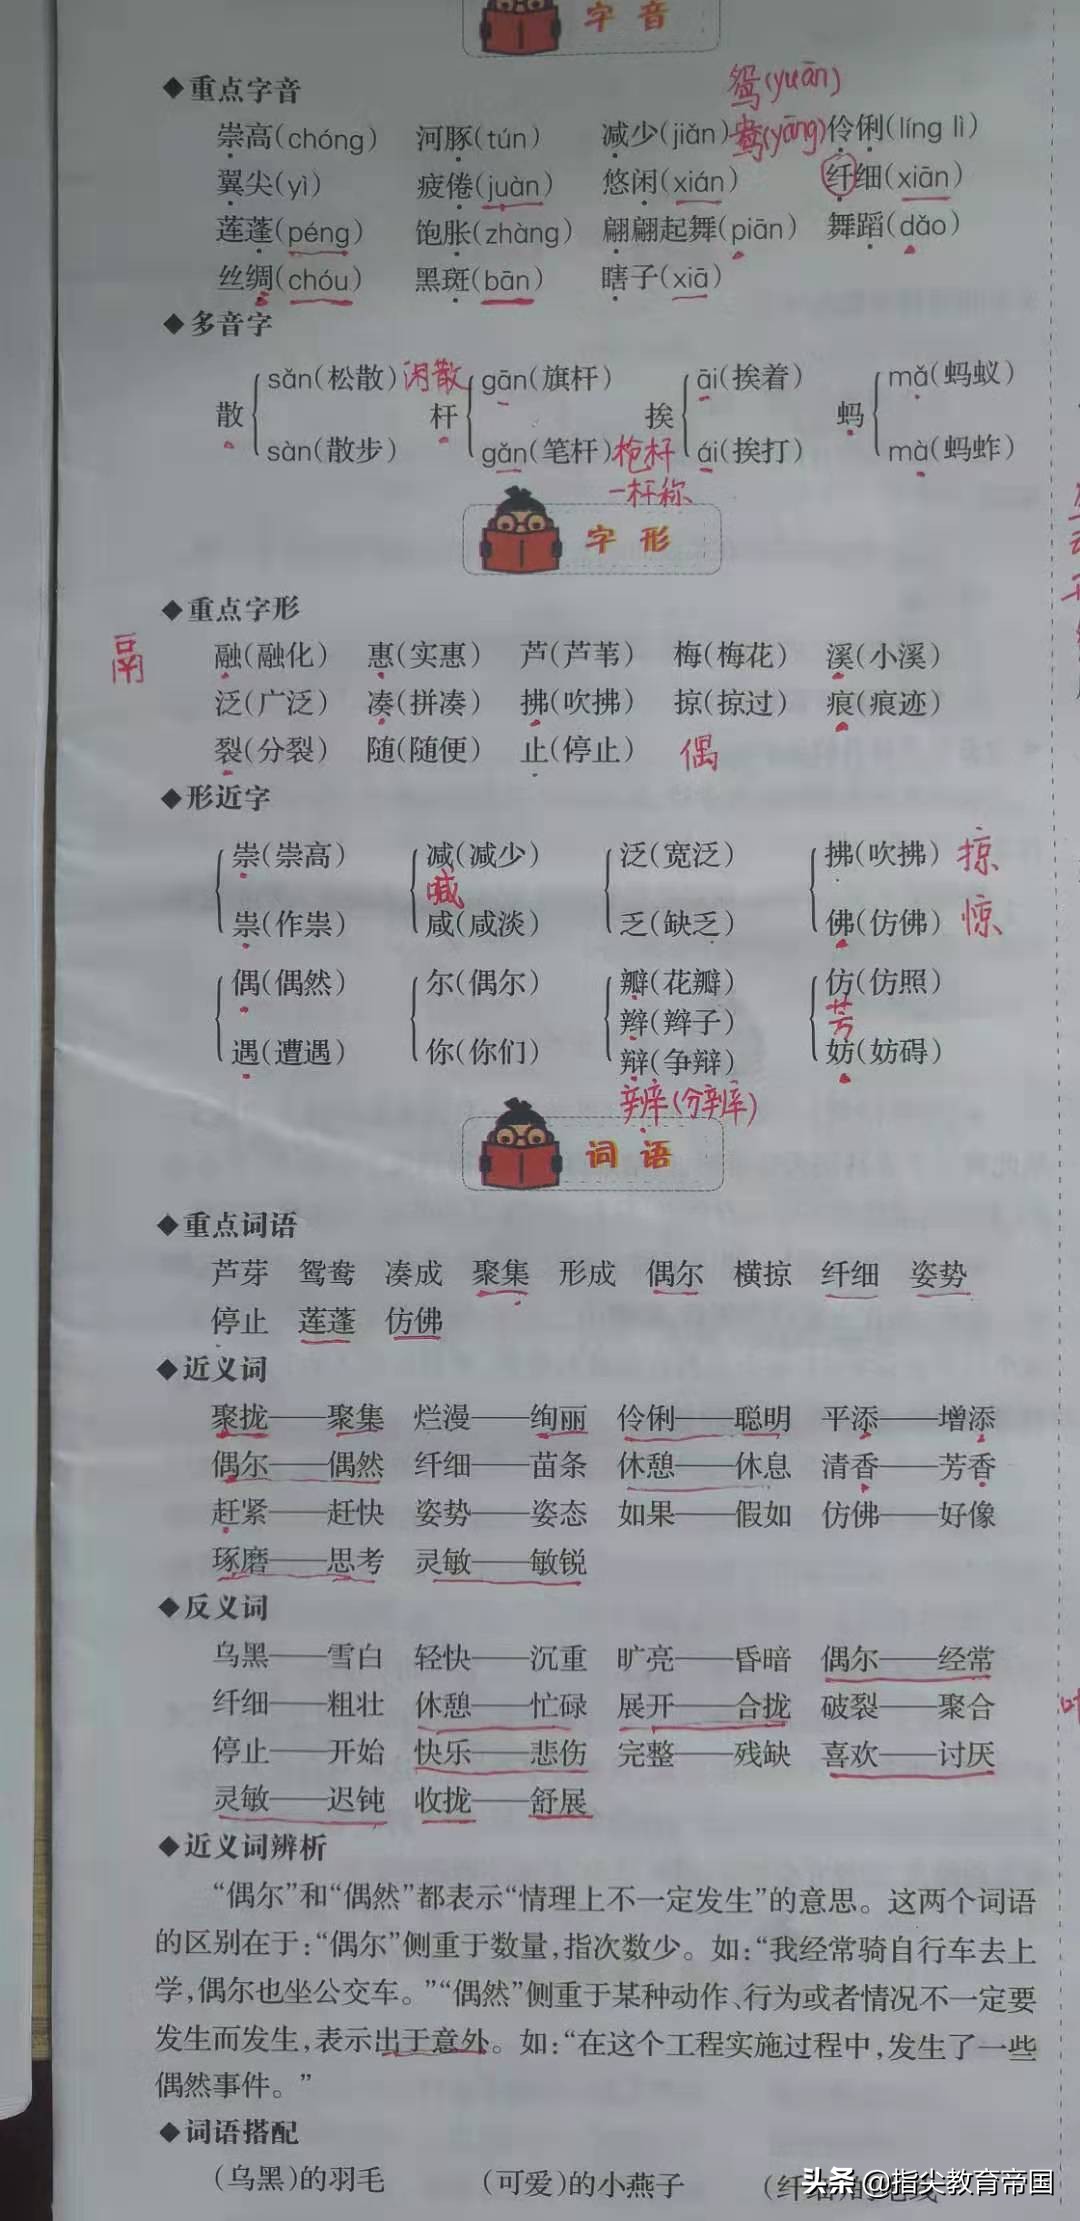 字音
◆重点字音
鸳(yuān)
崇高(chóng) 河豚(tún) 减少(jiǎn) 鸯(yāng) 伶俐(líng lì)
翼尖(yì) 疲倦(juàn) 悠闲(xián) 纤细(xiān)
莲蓬(péng) 饱胀(zhàng) 翩翩起舞(piān) 舞蹈(dǎo)
丝绸(chóu) 黑斑(bān) 瞎子(xiā)
◆多音字
散 sǎn(松散) 闲散 sàn(散步)
杆 gān(旗杆) gǎn(笔杆) 枪杆 一杆称
挨 āi(挨着) ái(挨打)
蚂 mǎ(蚂蚁) mà(蚂蚱)
字形
◆重点字形
鬲
融(融化) 惠(实惠) 芦(芦苇) 梅(梅花) 溪(小溪)
泛(广泛) 凑(拼凑) 拂(吹拂) 掠(掠过) 痕(痕迹)
裂(分裂) 随(随便) 止(停止) 偶
◆形近字
崇(崇高) 减(减少) 泛(宽泛) 拂(吹拂) 掠
喊
祟(作祟) 咸(咸淡) 乏(缺乏) 佛(仿佛) 惊
偶(偶然) 尔(偶尔) 瓣(花瓣) 仿(仿照)
辫(辫子) 芳
遇(遭遇) 你(你们) 辩(争辩) 妨(妨碍)
辨(分辨)
词语
◆重点词语
芦芽 鸳鸯 凑成 聚集 形成 偶尔 横掠 纤细 姿势
停止 莲蓬 仿佛
◆近义词
聚拢——聚集 烂漫——绚丽 伶俐——聪明 平添——增添
偶尔——偶然 纤细——苗条 休憩——休息 清香——芳香
赶紧——赶快 姿势——姿态 如果——假如 仿佛——好像
琢磨——思考 灵敏——敏锐
◆反义词
乌黑——雪白 轻快——沉重 旷亮——昏暗 偶尔——经常
纤细——粗壮 休憩——忙碌 展开——合拢 破裂——聚合
停止——开始 快乐——悲伤 完整——残缺 喜欢——讨厌
灵敏——迟钝 收拢——舒展
◆近义词辨析
“偶尔”和“偶然”都表示“情理上不一定发生”的意思。这两个词语
的区别在于:“偶尔”侧重于数量,指次数少。如:“我经常骑自行车去上
学,偶尔也坐公交车。”“偶然”侧重于某种动作、行为或者情况不一定要
发生而发生,表示出于意外。如:“在这个工程实施过程中,发生了一些
偶然事件。”
◆词语搭配
(乌黑)的羽毛 (可爱)的小燕子 (纤细)的电线
头条 @指尖教育帝国